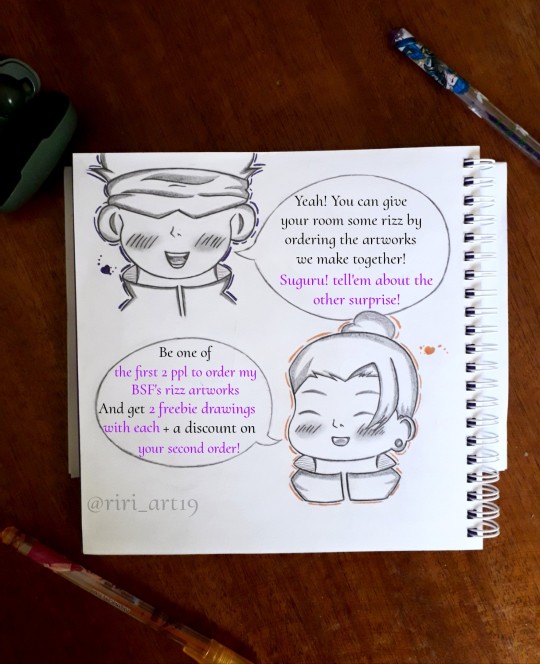 Yeah! You can give
your room some rizz by
ordering the artworks
we make together!
Suguru! tell'em about the
other surprise!
Be one of
the first 2 ppl to order my
BSF's rizz artworks
And get 2 freebie drawings
with each + a discount on
your second order!
@riri_art19